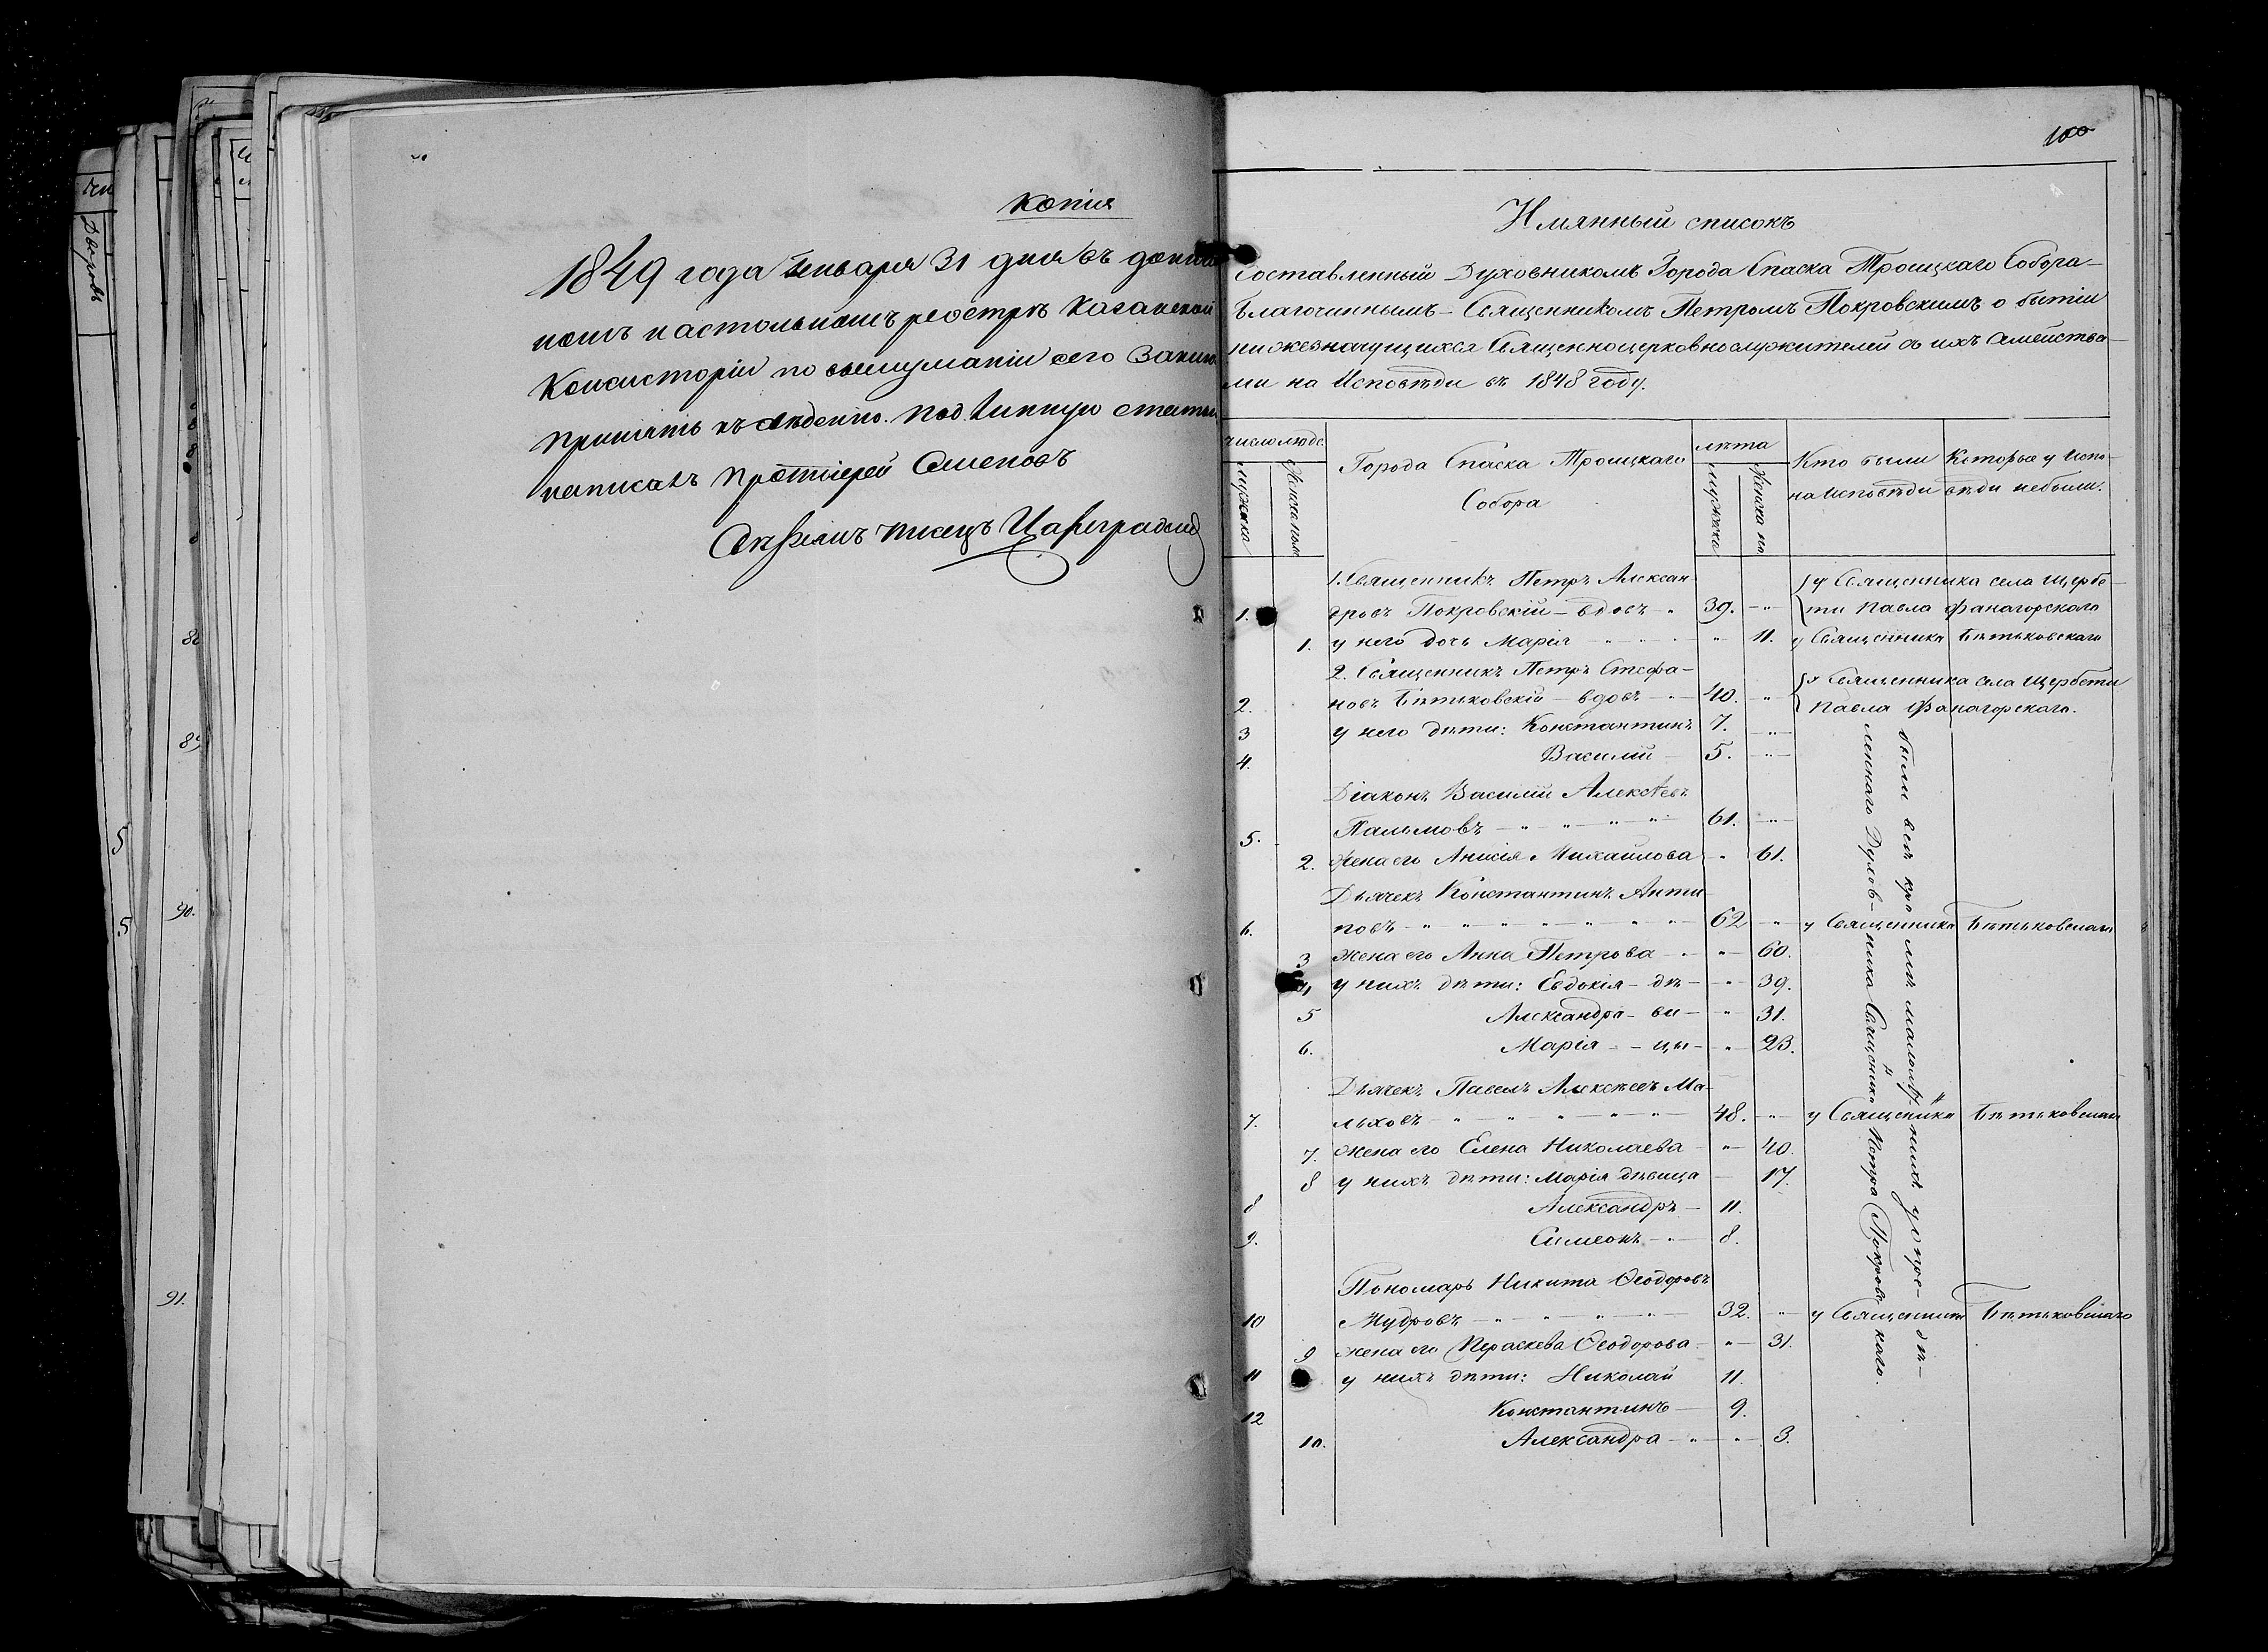 копія
1849 года Генваря 31 дня въ
номъ настольномъ реэстрѣ Казанской
Консисторіи по выслушаніи сего
принять къ свѣденію. Подлинную статью
написалъ Протоіерей Семеновъ
писецъ Цареградскій
100
Имянный списокъ
Составленный Духовникомъ Города Спаска Троицкаго Собора
Благочиннымъ Священникомъ Петромъ Покровскимъ о бытіи
нижезначущихся Священноцерковнослужителей съ ихъ Семейства-
ми на Исповѣди въ 1848 году.
число люде.
мужска
Женска пол.
Города Спаска Троицкаго
Собора
лѣта
мужска
Женска по.
Кто были
на Исповѣди
Которые у Испо-
вѣди небыли.
1. Священникъ Петръ Алексан
1. дровъ Покровскій - вдовъ - 39. у Священника села Щербе-
ти Павла Фанагорскаго
1. у него дочь Марія 11. у Священника Бѣтьковскаго
2. Священникъ Петръ Стефа-
2. новъ Бѣтьковскій - вдовъ - 40. у Священника села Щербети
Павла Фанагорскаго.
3 у него дѣти: Константинъ 7.
4. Василій 5.
Діаконъ Василій Алексѣевъ
5. Пальмовъ 61.
2. Жена его Анисія Михайлова 61.
Дьячекъ Константинъ Анти
6. повъ 62 у Священника Бѣтьковскаго
3 Жена его Анна Петрова 60.
4 у нихъ дѣти: Евдокія - дѣ- 39.
5 Александра - ви- 31.
6. Марія - цы 23.
Дьячекъ Павелъ Алексѣевъ Ма-
7. льховъ 48. у Священника Бѣтьковскаго
7. Жена его Елена Николаева 40.
8 у нихъ дѣти: Марія дѣвица 17.
8 Александръ 11.
9. Симеонъ 8.
Пономарь Никита Ѳеодоровъ
10 Мудровъ 32. у Священника Бѣтьковскаго
9 жена его Параскева Ѳеодорова 31.
11 у нихъ дѣти: Николай 11.
12 Константинъ 9.
10. Александра 3.
были всѣ кро мѣ малолѣт- нихъ у опре- дѣ-
леннаго Духов- ника Священника Петра Покров скаго.
Дворовъ
82
89
90.
91.
5
5